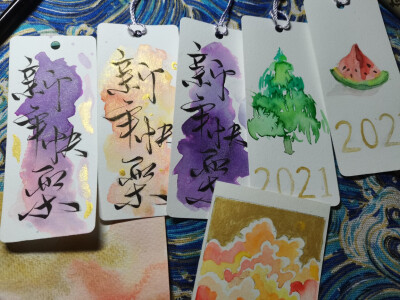 新年快樂
新年快樂
新年快樂
2021
2021